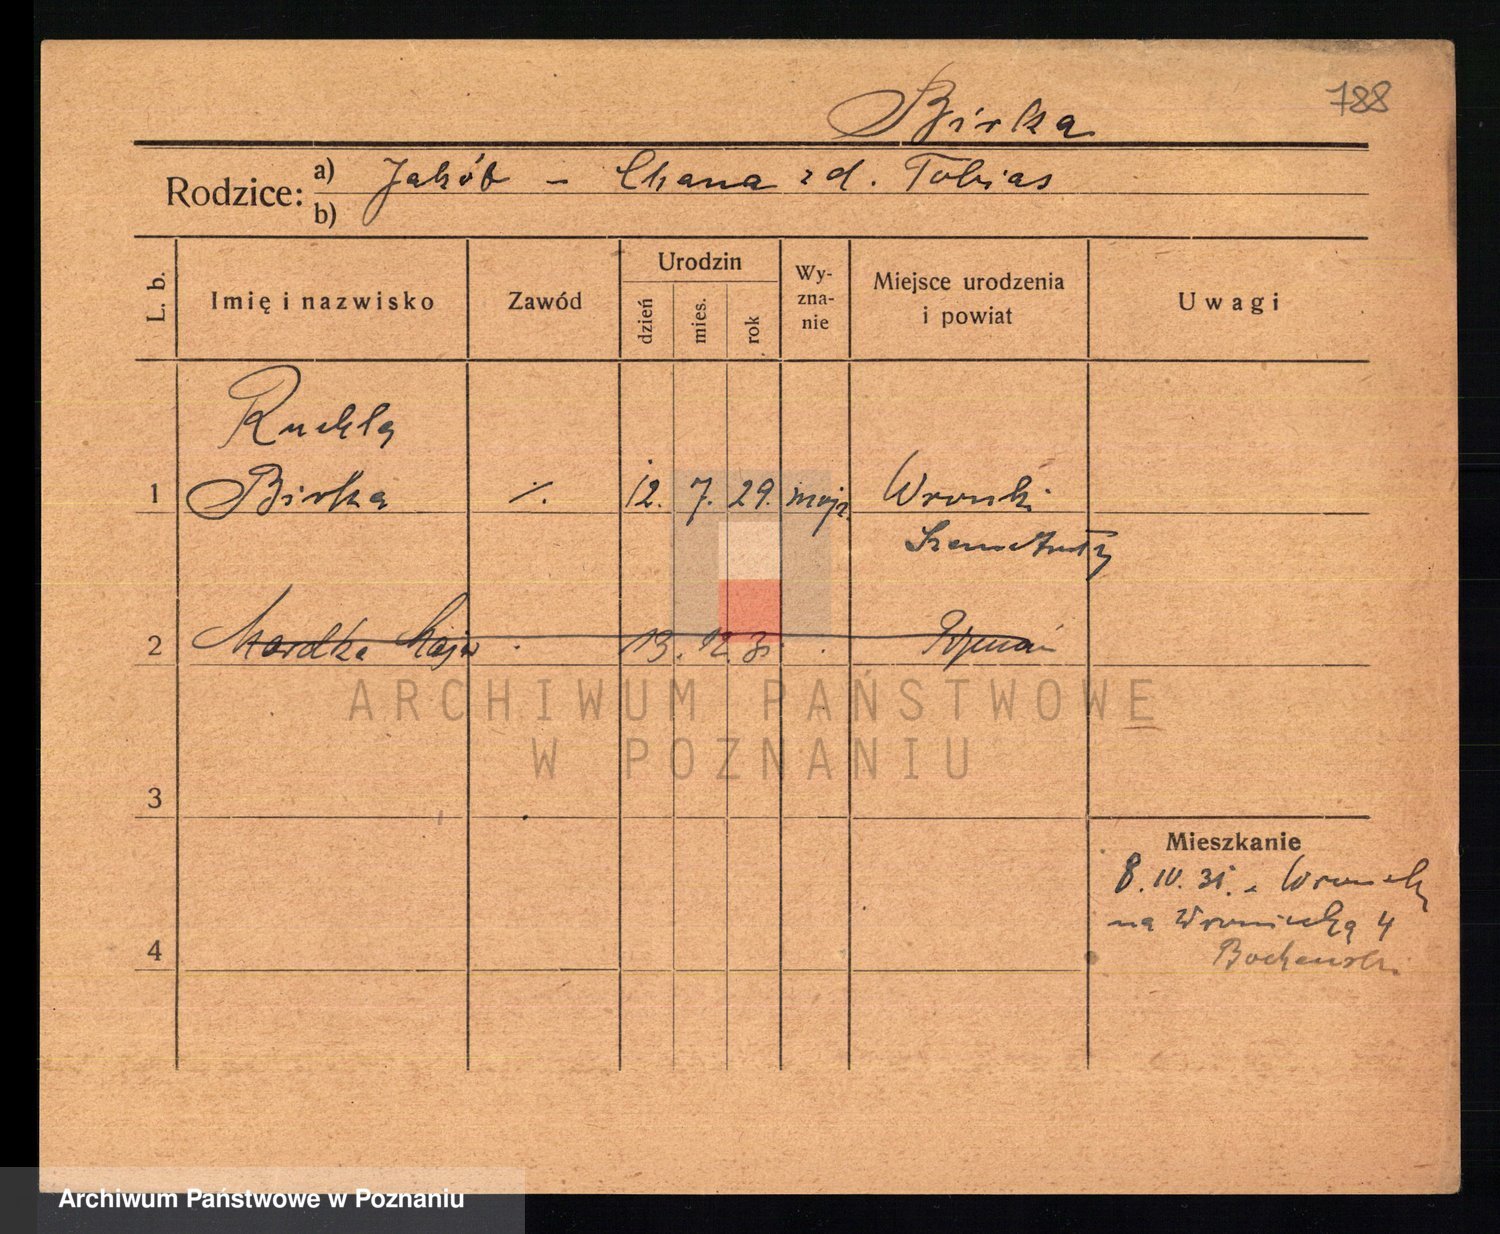 788
Birka
Rodzice:
a) Jakób – Chana zd. Tobias
b)
L. b.
Imię i nazwisko
Zawód
Urodzin
dzień
mies.
rok
Wy-
zna-
nie
Miejsce urodzenia
i powiat
Uwagi
Ruchla
1 Birka ./. 12. 7. 29. mojż. Wronki
Szamotuły
2 Mordka 13. 12 31 Poznań
3
4
Mieszkanie
8. IV. 31. z Wronek
na Wroniecką 4
ARCHIWUM PAŃSTWOWE
W POZNANIU
Archiwum Państwowe w Poznaniu